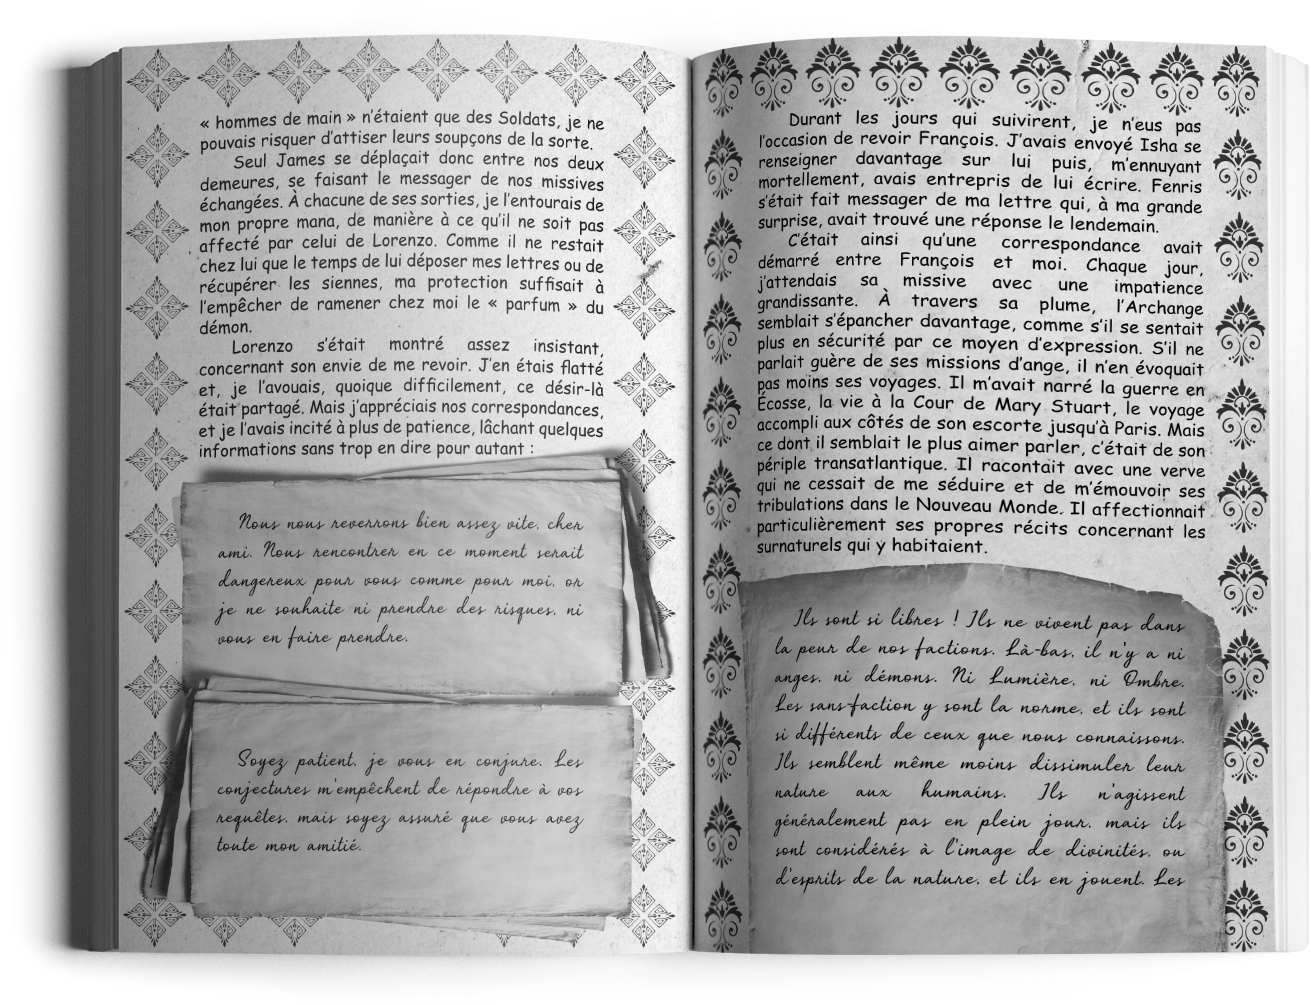 « hommes de main » n'étaient que des Soldats, je ne
pouvais risquer d'attiser leurs soupçons de la sorte.
Seul James se déplaçait donc entre nos deux
demeures, se faisant le messager de nos missives
échangées. À chacune de ses sorties, je l'entourais de
mon propre mana, de manière à ce qu'il ne soit pas
affecté par celui de Lorenzo. Comme il ne restait
chez lui que le temps de lui déposer mes lettres ou de
récupérer les siennes, ma protection suffisait à
l'empêcher de ramener chez moi le « parfum » du
démon.
Lorenzo s'était montré assez insistant,
concernant son envie de me revoir. J'en étais flatté
et, je l'avouais, quoique difficilement, ce désir-là
était partagé. Mais j'appréciais nos correspondances,
et je l'avais incité à plus de patience, lâchant quelques
informations sans trop en dire pour autant :
Nous nous reverrons bien assez vite, cher
ami. Nous rencontrer en ce moment serait
dangereux pour vous comme pour moi, or
je ne souhaite ni prendre des risques, ni
vous en faire prendre.
Soyez patient, je vous en conjure. Les
conjectures m'empêchent de répondre à vos
requêtes, mais soyez assuré que vous avez
toute mon amitié.
Durant les jours qui suivirent, je n'eus pas
l'occasion de revoir François. J'avais envoyé Isha se
renseigner davantage sur lui puis, m'ennuyant
mortellement, avais entrepris de lui écrire. Fenris
s'était fait messager de ma lettre qui, à ma grande
surprise, avait trouvé une réponse le lendemain.
C'était ainsi qu'une correspondance avait
démarré entre François et moi. Chaque jour,
j'attendais sa missive avec une impatience
grandissante. À travers sa plume, l'Archange
semblait s'épancher davantage, comme s'il se sentait
plus en sécurité par ce moyen d'expression. S'il ne
parlait guère de ses missions d'ange, il n'en évoquait
pas moins ses voyages. Il m'avait narré la guerre en
Écosse, la vie à la Cour de Mary Stuart, le voyage
accompli aux côtés de son escorte jusqu'à Paris. Mais
ce dont il semblait le plus aimer parler, c'était de son
périple transatlantique. Il racontait avec une verve
qui ne cessait de me séduire et de m'émouvoir ses
tribulations dans le Nouveau Monde. Il affectionnait
particulièrement ses propres récits concernant les
surnaturels qui y habitaient.
Ils sont si libres ! Ils ne vivent pas dans
la peur de nos factions. Là-bas, il n'y a ni
anges, ni démons. Ni Lumière, ni Ombre.
Les sans-faction y sont la norme, et ils sont
si différents de ceux que nous connaissons.
Ils semblent même moins dissimuler leur
nature aux humains. Ils n'agissent
généralement pas en plein jour, mais ils
sont considérés à l'image de divinités, ou
d'esprits de la nature, et ils en jouent. Les